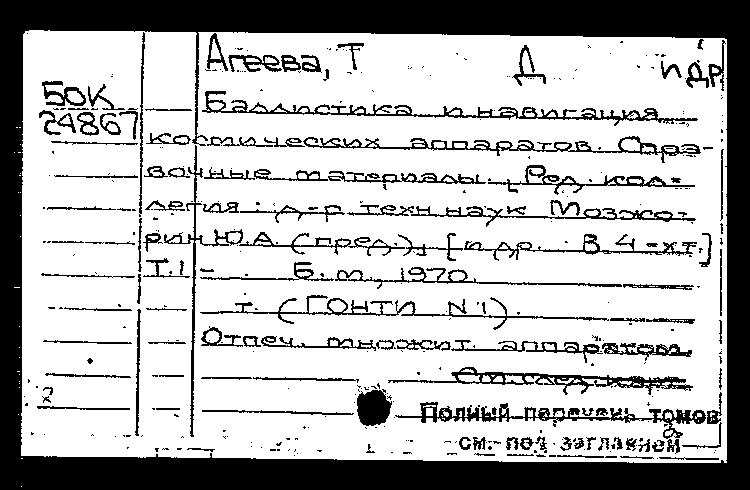 Агеева, Т Д и др
БОК
24867
Баллистика и навигация
космических аппаратов. Спра-
вочные материалы. [Ред. кол-
легия: д-р техн наук Мозжо-
рин Ю.А. (пред.)] [и др. В 4-хт.]
Т.1 - Б.м., 1970.
т. (ГОНТИ N1).
Отпеч. множит. аппаратом.
См. след. карт
Полный перечень томов
см. под заглавием